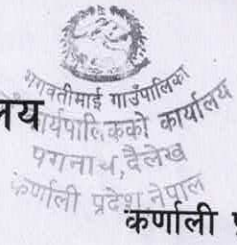 भगवतीमाई गाउँपालिका
लय
कार्यपालिकको कार्यालय
पगनाथ,दैलेख
कर्णाली प्रदेश नेपाल
कर्णाली